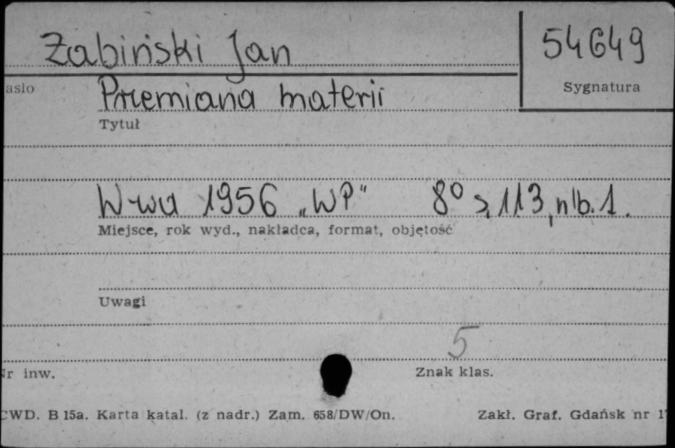 Żabiński Jan
54649
asło
Sygnatura
Przemiana materii
Tytuł
W-wa 1956 „WP" 8° s, 113, nlb. 1.
Miejsce, rok wyd., nakładca, format, objętość
Uwagi
5
Nr inw.
Znak klas.
CWD. B 15a. Karta katal. (z nadr.) Zam. 658/DW/On.
Zakł. Graf. Gdańsk nr 1